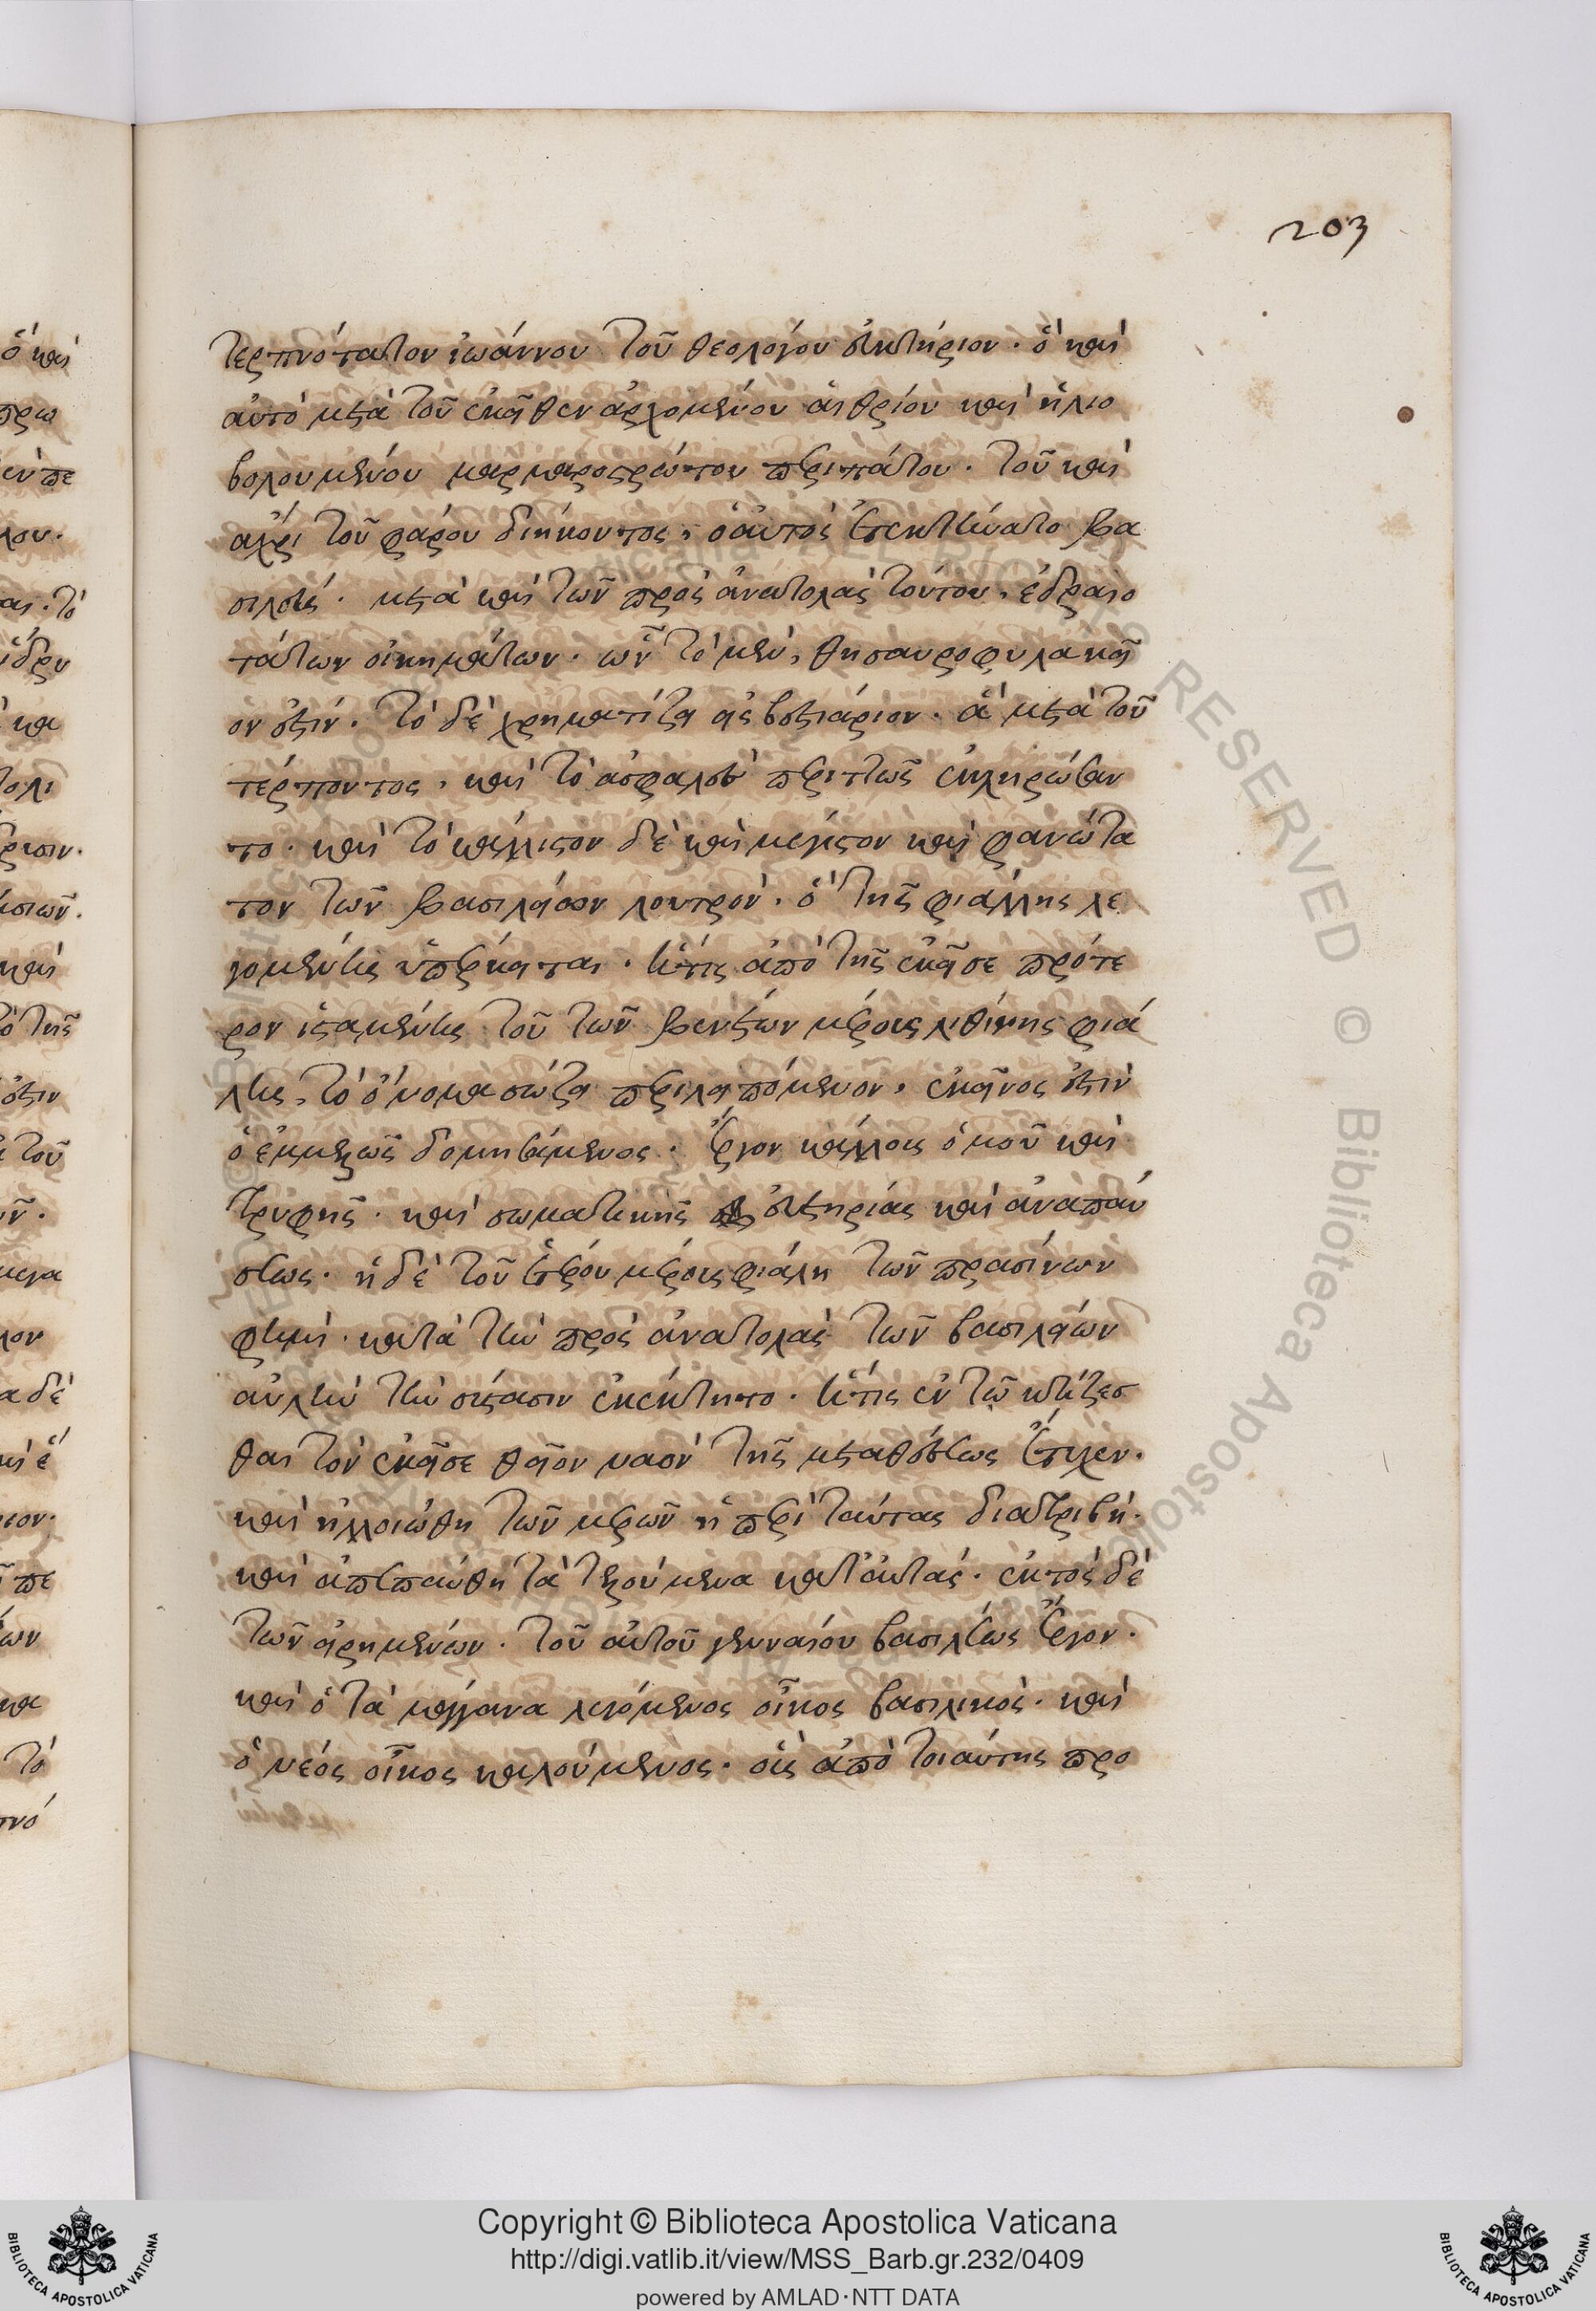 203
τερπνότατον ἰωάννου τοῦ θεολόγου εὐκτήριον. ὃ καὶ
αὐτὸ μετὰ τοῦ ἐκεῖθεν ἀρχομένου αἰθρίου καὶ ἡλιο
βολουμένου μαρμαροστρώτου περιπάτου. τοῦ καὶ
ἄχρι τοῦ φάρου διήκοντος, ὁ αὐτὸς ἐτεκτήνατο βα
σιλεύς. μετὰ καὶ τῶν πρὸς ἀνατολὰς τούτου, ἑδραιο
τάτων οἰκημάτων. ὧν τὸ μὲν, θησαυροφυλακεῖ
ον ἐστίν. τὸ δὲ χρηματίζει εἰς βεστιάριον. ἃ μετὰ τοῦ
τέρποντος, καὶ τὸ ἀσφαλὲς περιττῶς ἐκληρώσαν
το. καὶ τὸ κάλλιστον δὲ καὶ μέγιστον καὶ φανώτα
τον τῶν βασιλείων λουτρὸν. ὃ τῆς φιάλλης λε
γομένης ὑπέρκειται. ἥτις ἀπὸ τῆς ἐκεῖσε πρότε
ρον ἱσταμένης τοῦ τῶν βενέτων μέρους λιθίνης φιά
λης, τὸ ὄνομα σώζει περιλειπόμενον. ἐκεῖνος ἐστὶν
ὁ ἐμμελῶς δομησάμενος. ἔργον κάλλους ὁμοῦ καὶ
τρυφῆς. καὶ σωματικῆς εὐετηρίας καὶ ἀναπαύ
σεως. ἡ δὲ τοῦ ἑτέρου μέρους φιάλη τῶν πρασίνων
φημὶ. κατὰ τὴν πρὸς ἀνατολὰς τῶν βασιλείων
αὐλὴν τὴν σύστασιν ἐκέκτητο. ἥτις ἐν τῷ κτίζεσ
θαι τὸν ἐκεῖσε θεῖον ναὸν τῆς μεταθέσεως ἔτυχεν.
καὶ ἠλλοιώθη τῶν μερῶν ἡ περὶ ταύτας διατριβή.
καὶ ἀπεπαύθη τὰ τελούμενα κατ' αὐτάς. ἐκτὸς δὲ
τῶν εἰρημένων. τοῦ αὐτοῦ γενναίου βασιλέως ἔργον.
καὶ ὁ τὰ μάγγανα λεγόμενος οἶκος βασιλικός. καὶ
ὁ νέος οἶκος καλούμενος. οὓς ἀπὸ τοιαύτης προ
Copyright © Biblioteca Apostolica Vaticana
http://digi.vatlib.it/view/MSS_Barb.gr.232/0409
powered by AMLAD·NTT DATA
BIBLIOTECA APOSTOLICA VATICANA
BIBLIOTECA APOSTOLICA VATICANA